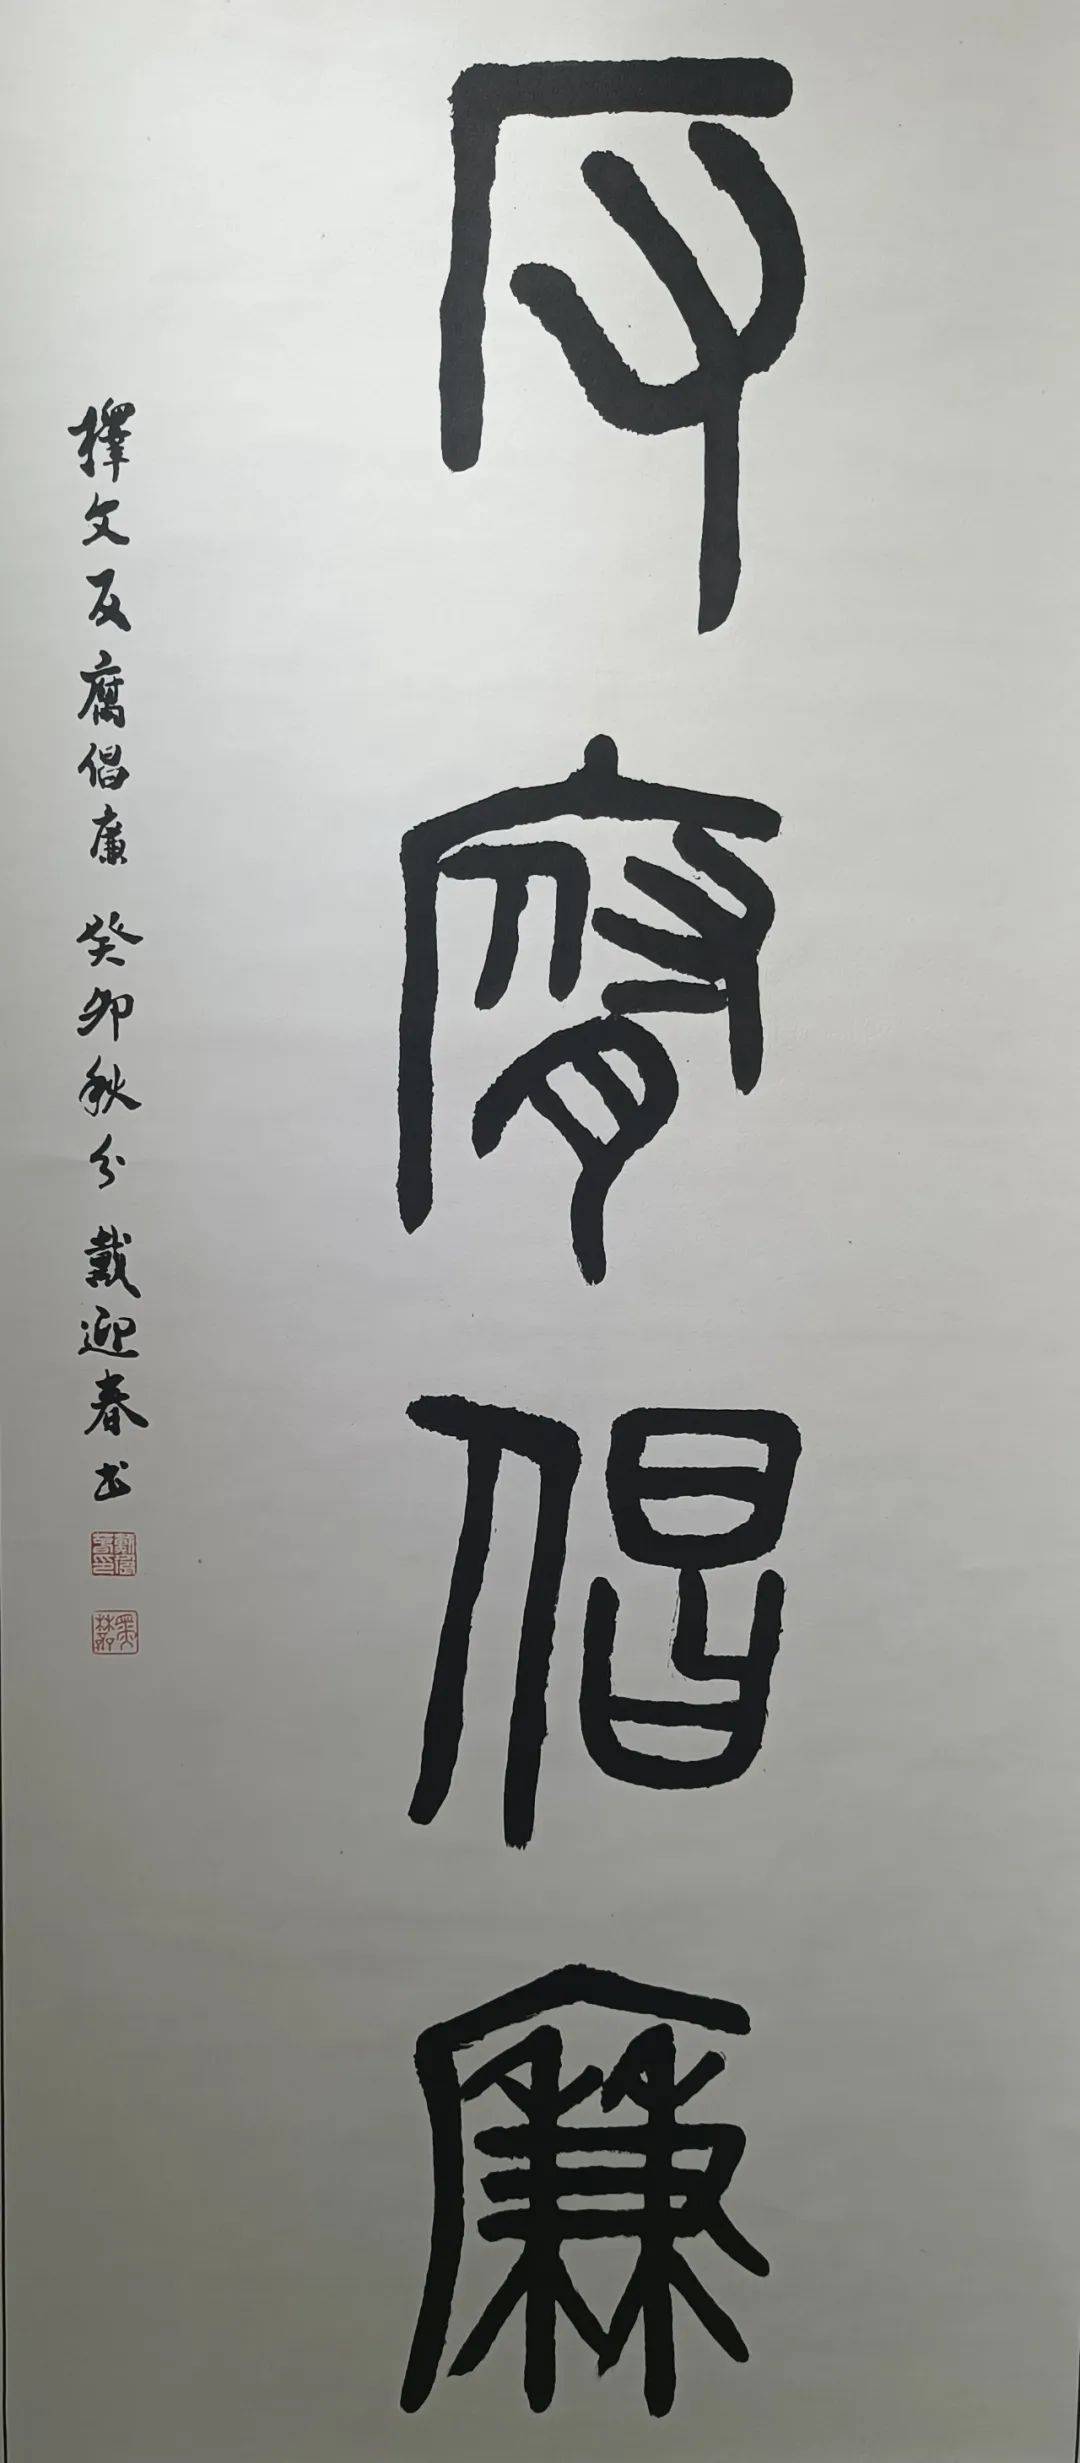 反腐倡廉
释文反腐倡廉 癸卯秋分 戴迎春书